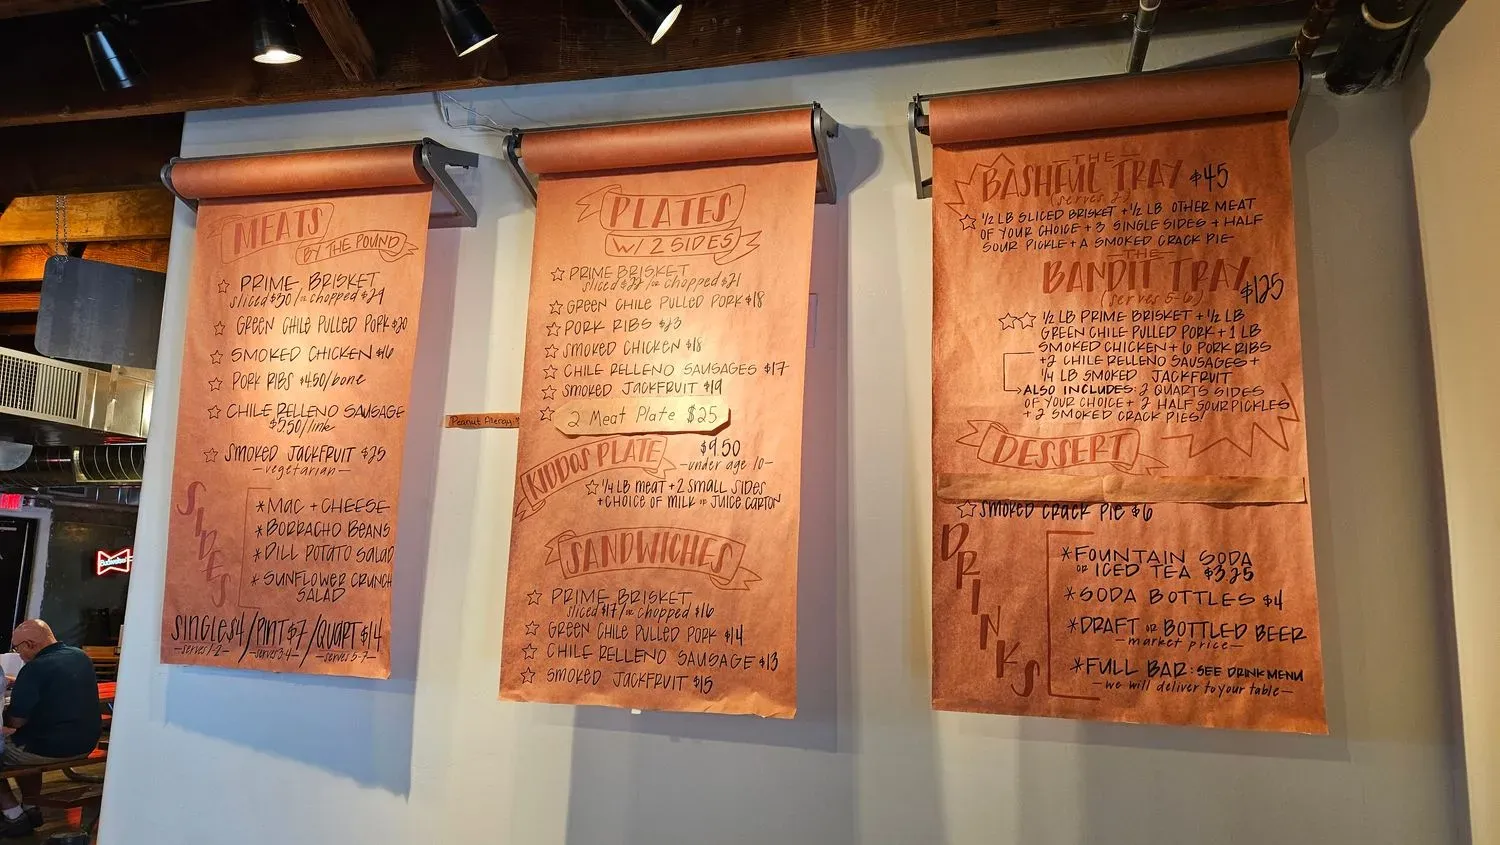 MEATS
BY THE POUND
PRIME BRISKET
sliced $30/or chopped $29
GREEN CHILE PULLED PORK $20
SMOKED CHICKEN $16
PORK RIBS $4.50/bone
CHILE RELLENO SAUSAGE
$5.50/link
SMOKED JACKFRUIT $25
—vegetarian—
SIDES
*MAC + CHEESE
*BORRACHO BEANS
*DILL POTATO SALAD
*SUNFLOWER CRUNCH
SALAD
SINGLE $4/PINT $7/QUART $14
—serves 1-2— —serves 3-4— —serves 5-7—
Peanut Allergy
PLATES
W/ 2 SIDES
PRIME BRISKET
sliced $22/or chopped $21
GREEN CHILE PULLED PORK $18
PORK RIBS $23
SMOKED CHICKEN $18
CHILE RELLENO SAUSAGES $17
SMOKED JACKFRUIT $19
2 Meat Plate $25
KIDDOS PLATE $9.50
—under age 10—
1/4 LB MEAT + 2 SMALL SIDES
+ CHOICE OF MILK or JUICE CARTON
SANDWICHES
PRIME BRISKET
sliced $17/or chopped $16
GREEN CHILE PULLED PORK $14
CHILE RELLENO SAUSAGE $13
SMOKED JACKFRUIT $15
—THE—
BASHFUL TRAY $45
(serves 2)
1/2 LB SLICED BRISKET + 1/2 LB OTHER MEAT
OF YOUR CHOICE + 3 SINGLE SIDES + HALF
SOUR PICKLE + A SMOKED CRACK PIE
—THE—
BANDIT TRAY $125
(serves 5-6)
1/2 LB PRIME BRISKET + 1/2 LB
GREEN CHILE PULLED PORK + 1 LB
SMOKED CHICKEN + 6 PORK RIBS
+ 2 CHILE RELLENO SAUSAGES +
1/4 LB SMOKED JACKFRUIT
ALSO INCLUDES: 2 QUARTS SIDES
OF YOUR CHOICE + 2 HALF SOUR PICKLES
+ 2 SMOKED CRACK PIES!
DESSERT
SMOKED CRACK PIE $6
DRINKS
*FOUNTAIN SODA
or ICED TEA $3.25
*SODA BOTTLES $4
*DRAFT or BOTTLED BEER
—market price—
*FULL BAR: SEE DRINK MENU
—we will deliver to your table—
Budweiser